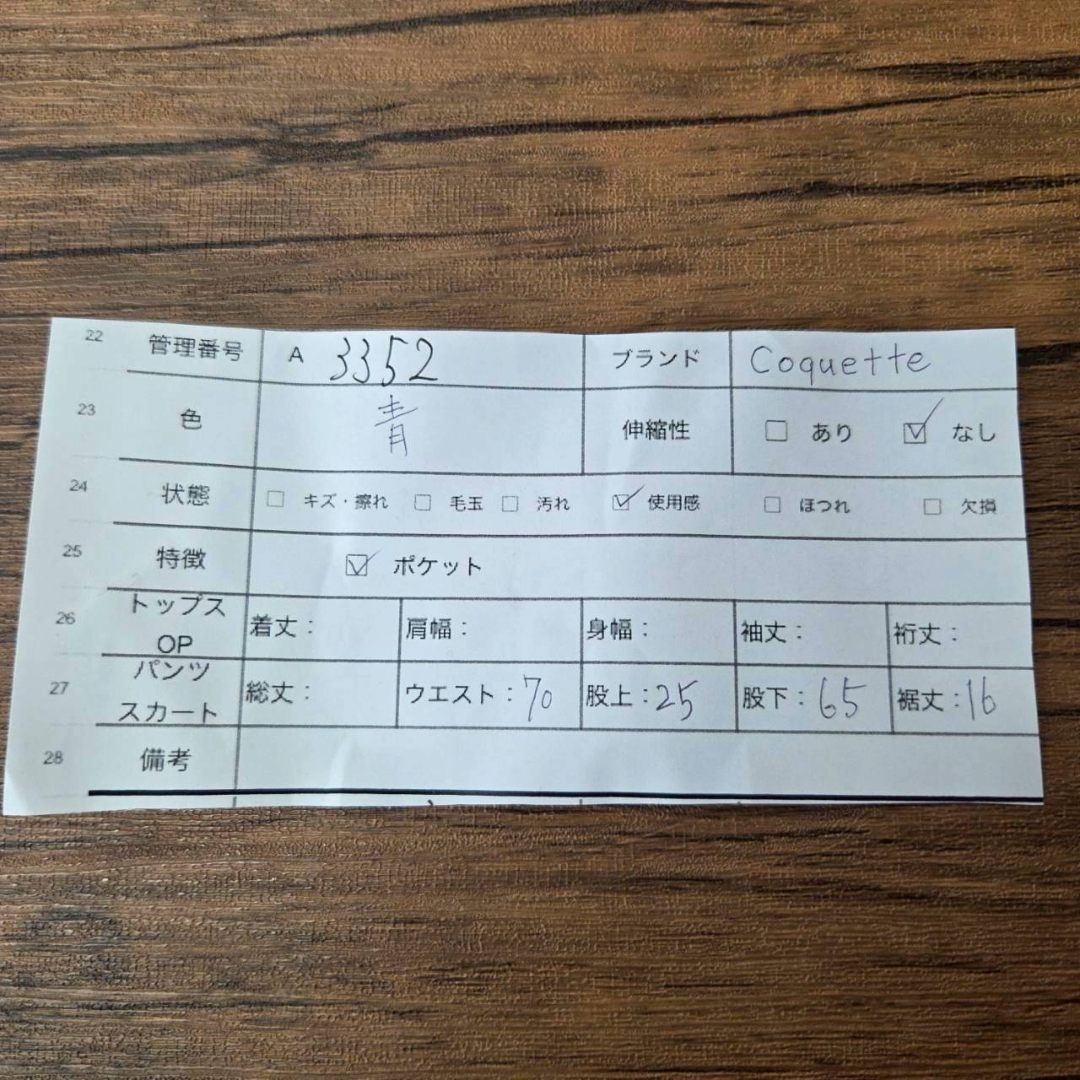 22 管理番号 A 3352 ブランド Coquette
23 色 青 伸縮性 □ あり ☑ なし
24 状態 □ キズ・擦れ □ 毛玉 □ 汚れ ☑ 使用感 □ ほつれ □ 欠損
25 特徴 ☑ ポケット
26 トップス OP 着丈： 肩幅： 身幅： 袖丈： 裄丈：
27 パンツ スカート 総丈： ウエスト：70 股上：25 股下：65 裾丈：16
28 備考